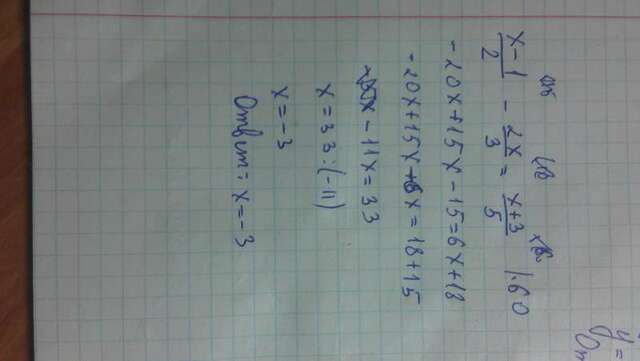 x-1/2 - 2x/3 = x+3/5 |·60
-20x+15x-15=6x+18
-20x+15x-6x=18+15
-11x=33
x=33:(-11)
x=-3
Ответ: x=-3
y=